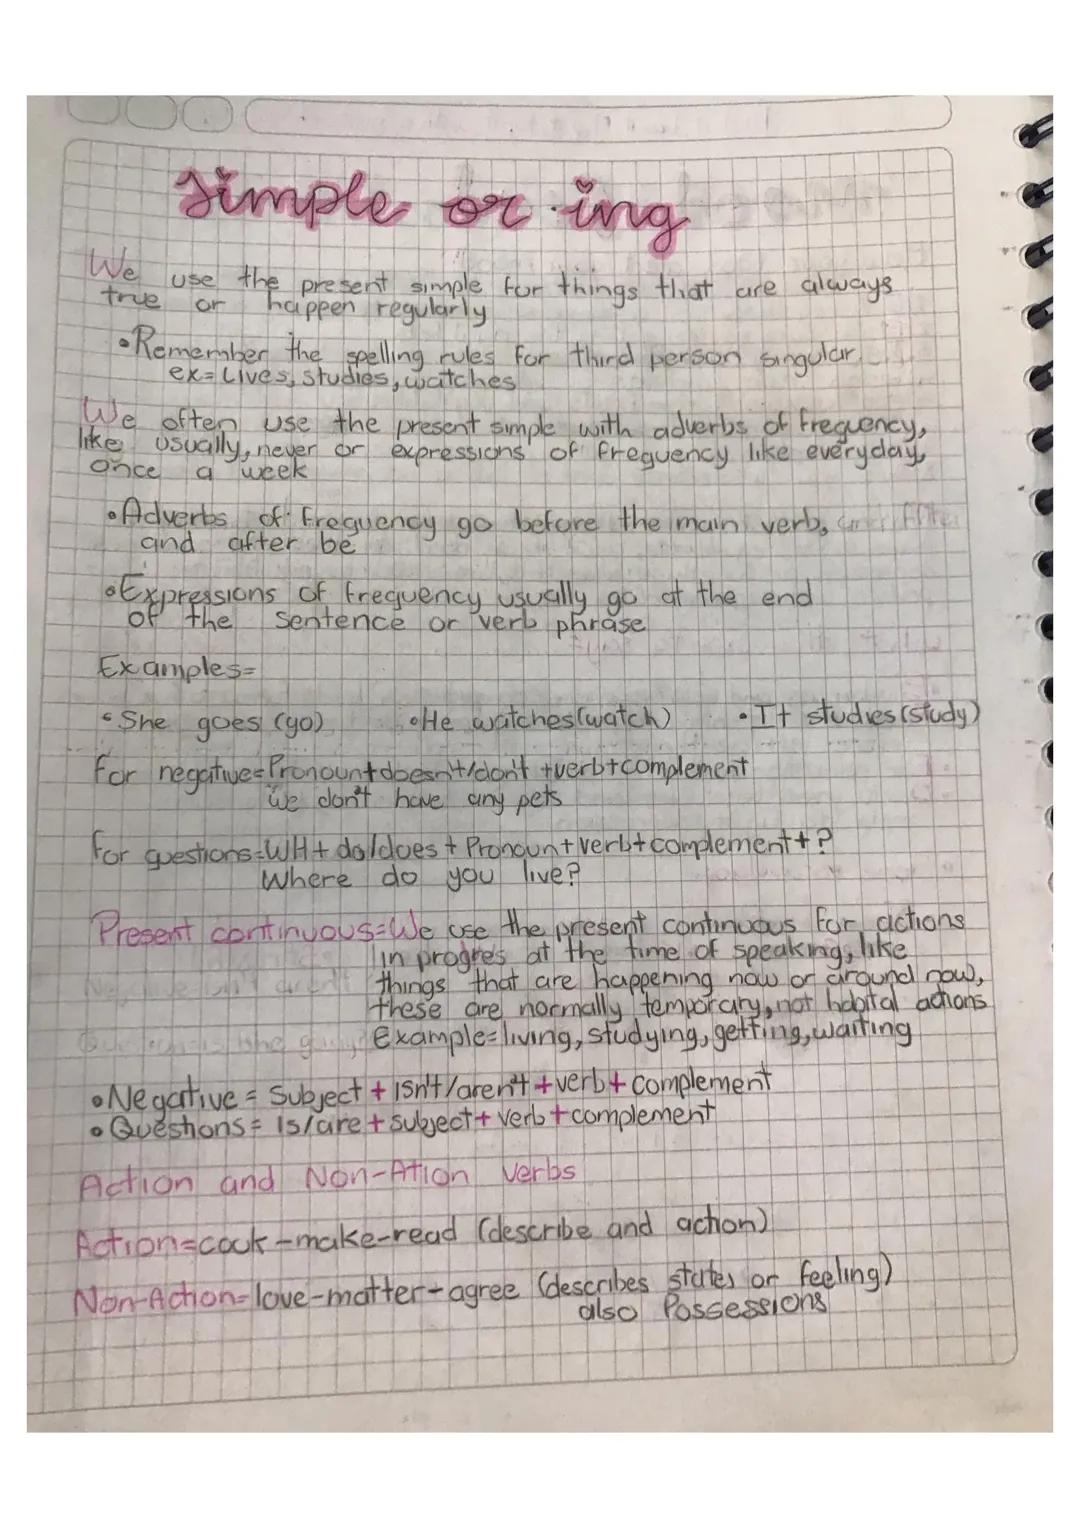 Simple or ing
We use the present simple for things that are always
true or happen regularly
•Remember the spelling rules for third person singular
ex=Lives, studies, watches
We often use the present simple with adverbs of frequency,
like usually, never or expressions of frequency like everyday,
once a week
•Adverbs of frequency go before the main verb,
and after be
•Expressions of frequency usually go at the end
of the sentence or verb phrase
Examples=
•She goes (go) •He watches(watch) •It studies(study)
For negative=Pronoun+doesn't/don't +verb+complement
we don't have any pets
For questions=WH+ do/does + Pronoun+verb+complement+?
Where do you live?
Present continuous=We use the present continuous for actions
in progres at the time of speaking, like
things that are happening now or around now,
these are normally temporary, not habital actions
Example=living, studying, getting, waiting
•Negative = Subject + isn't/aren't +verb+ complement
•Questions= Is/are + subject+ verb +complement
Action and Non-Ation verbs
Action=cook-make-read (describe and action)
Non-Action=love-matter-agree (describes states or feeling)
also Possessions